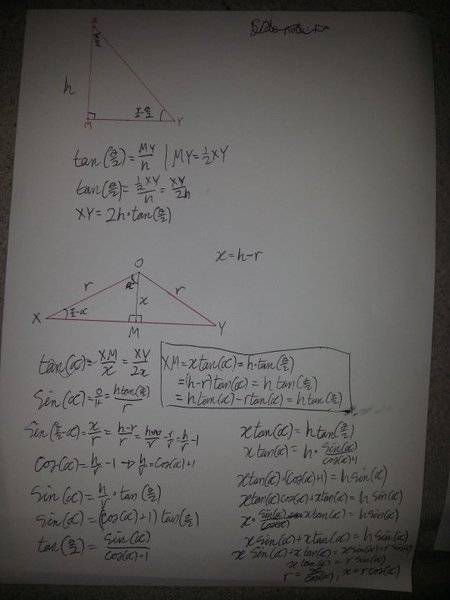 h
M
Y
tan(α/2) = MY/h | MY = ½XY
tan(α/2) = ½XY/h = XY/2h
XY = 2h·tan(α/2)
x = h-r
O
r
α
r
x
X
π/2-α
M
Y
tan(α) = XM/x = XY/2x
XM = x tan(α) = h·tan(α/2)
= (h-r)tan(α) = h tan(α/2)
= h tan(α) - r tan(α) = h tan(α/2)
Sin(α) = = h tan(α/2)/r
Sin(π/2-α) = x/r = h-r/r = - r/r = h/r - 1
cos(α) = h/r - 1 → h/r = cos(α)+1
Sin(α) = h/r · tan(α/2)
Sin(α) = (cos(α)+1) tan(α/2)
tan(α/2) = sin(α)/cos(α)+1
x tan(α) = h tan(α/2)
x tan(α) = h · sin(α)/cos(α)+1
x tan(α)·(cos(α)+1) = h sin(α)
x tan(α)cos(α) + x tan(α) = h sin(α)
x · sin(α)/cos(α) x tan(α) = h sin(α)
x sin(α) + x tan(α) = h sin(α)
x sin(α) + x tan(α) = x sin(α) + r sin(α)
x tan(α) = r sin(α)
r = x/cos(α), x = r cos(α)